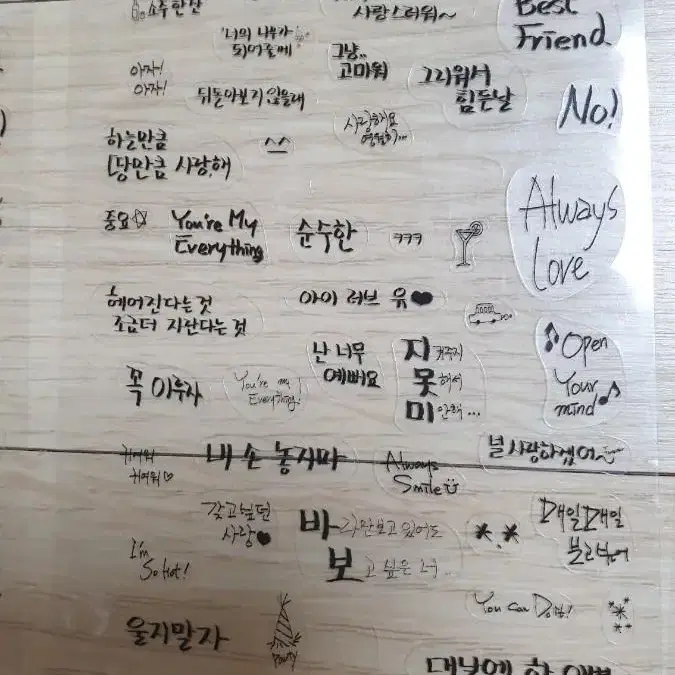 소주한잔
사랑스러워~
Best
Friend
'너의 나무가
되어줄께
그냥..
고마워
아자!
아자!
그리워서
힘든날
뒤돌아보지 않을래
No!
사랑해요
영원히...
하늘만큼
땅만큼 사랑해
^^
Always
Love
중요☆
You're My
Everything
순수한
ㅋㅋㅋ
헤어진다는것
조금더 지난다는것
아이 러브 유♥
Open
Your
mind
난 너무
예뻐요
지켜주지
못해서
미안해...
꼭 이루자
You're my
Everything!
널 사랑하겠어~
귀여워
귀여워♡
내 손 놓지마
Always
Smile
갖고싶던
사랑♥
바라만보고 있어도
보고 싶은 너..
*.*
매일매일
보고싶어
I'm
So Hot!
You Can Do it!
울지말자
Party